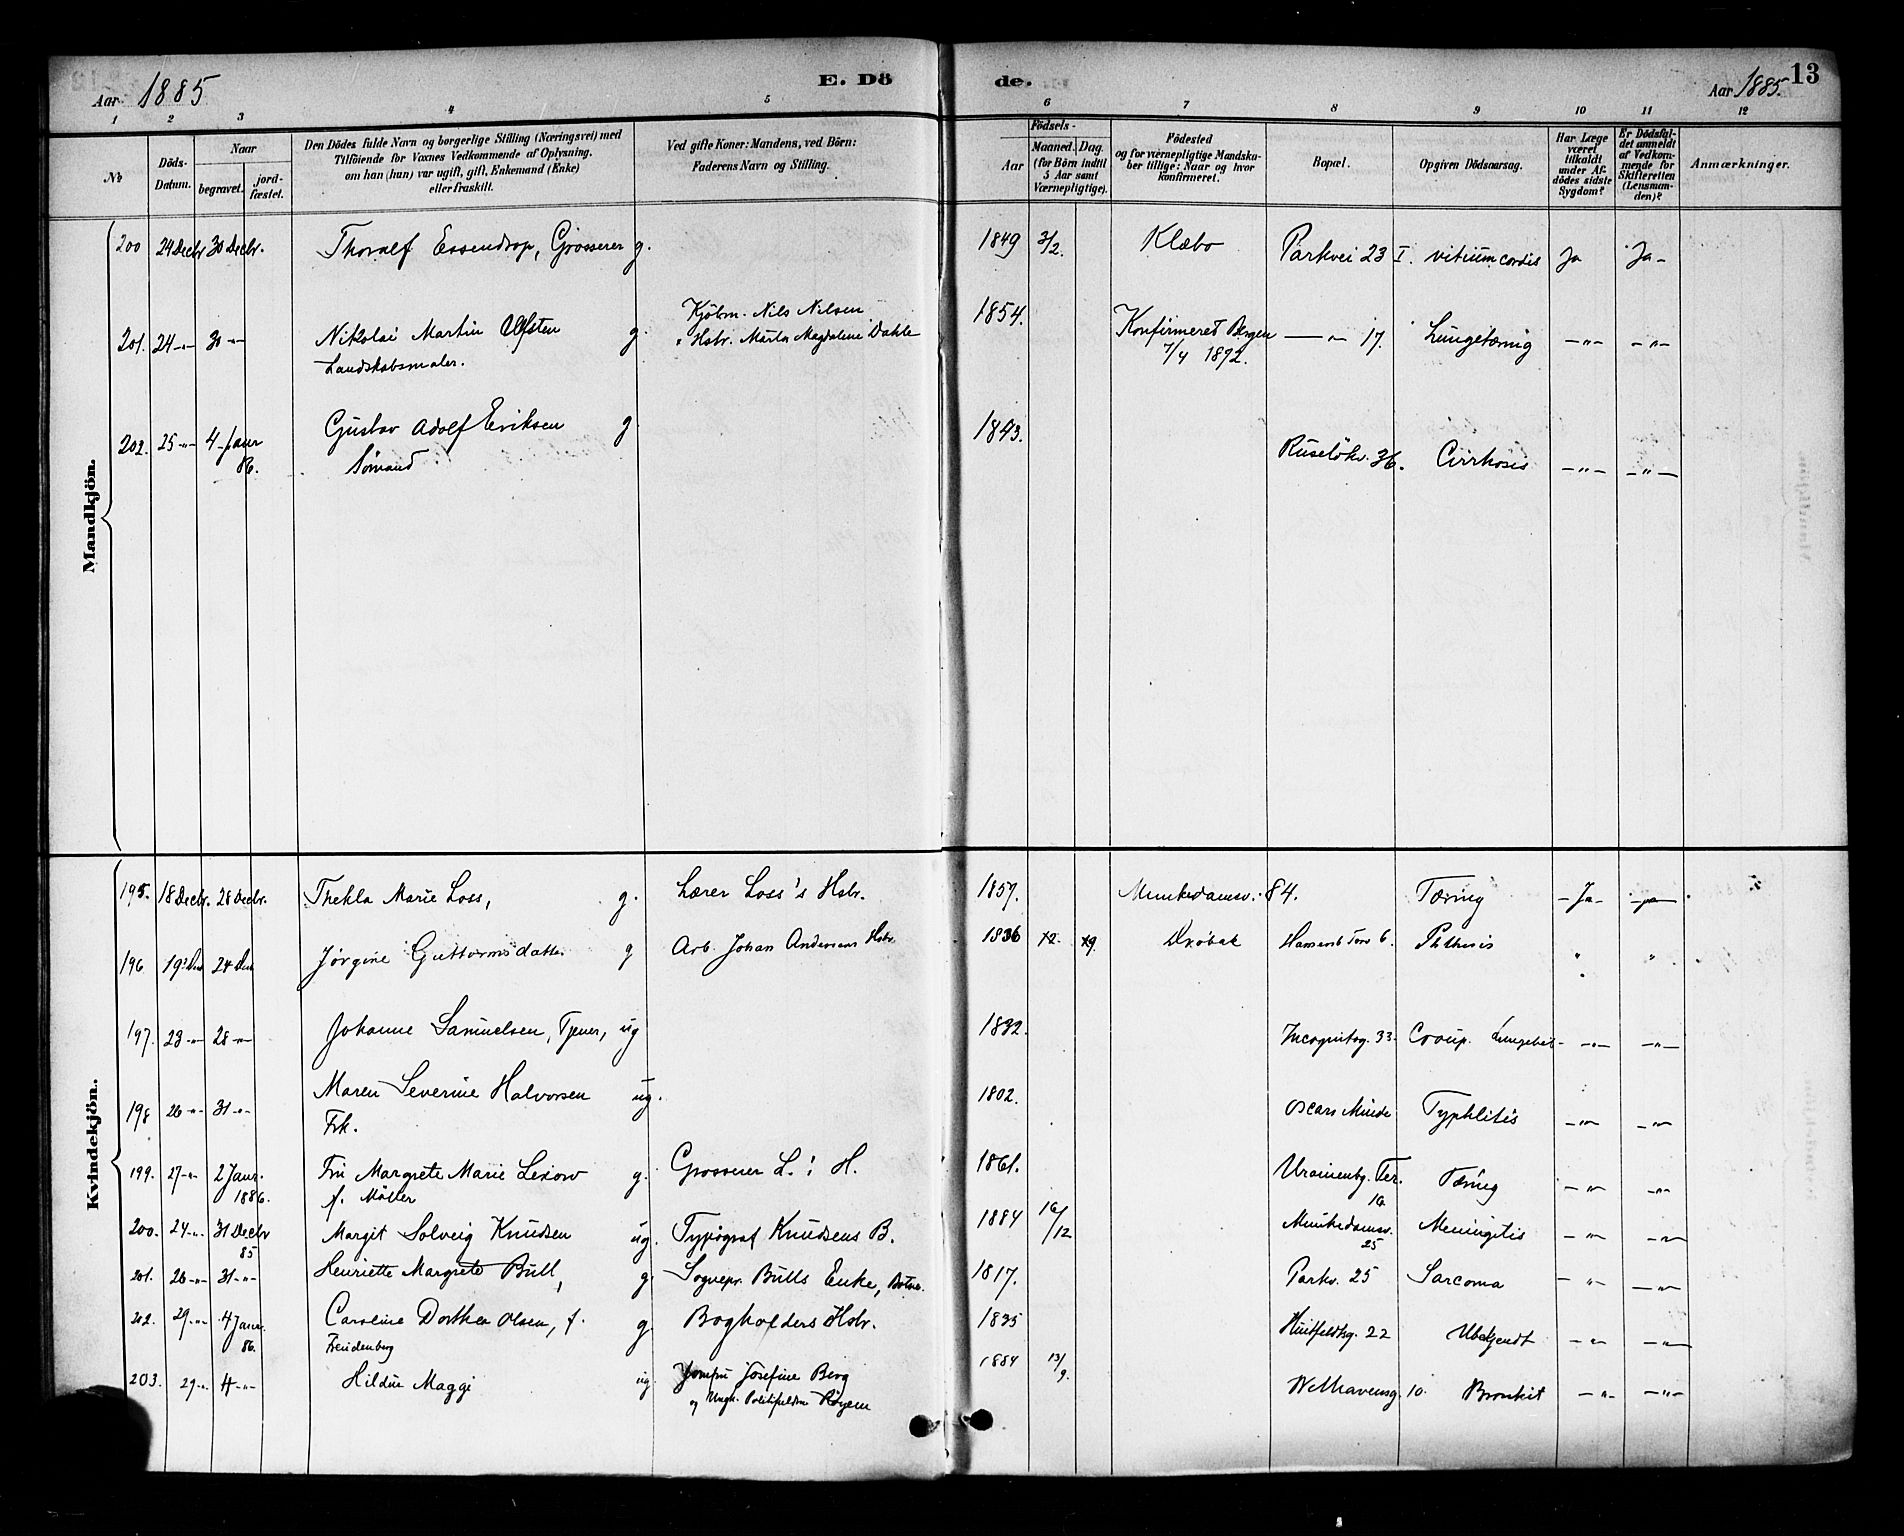 Aar 1885
E. Dö
de.
Aar 1885.
13
1 2 3 4 5 6 7 8 9 10 11 12
№
Döds-
Datum.
Naar
begravet.
jord-
fæstet.
Den Dödes fulde Navn og borgerlige Stilling (Næringsvei) med
Tilföiende for Voxnes Vedkommende af Oplysning,
om han (hun) var ugift, gift, Enkemand (Enke)
eller fraskilt.
Ved gifte Koner: Mandens, ved Börn:
Faderens Navn og Stilling.
Födsels-
Aar
Maaned. Dag.
(for Börn indtil
5 Aar samt
Værnepligtige).
Födested
og for værnepligtige Mandska-
ber tillige: Naar og hvor
konfirmeret.
Bopæl.
Opgiven Dödsaarsag.
Har Læge
været
tilkaldt
under Af-
dödes sidste
Sygdom?
Er Dödsfal-
det anmeldt
af Vedkom-
mende for
Skifteretten
(Lensman-
den)?
Anmærkninger.
Mandkjön.
200 24 Decbr 30 Decbr. Thoralf Essendrop, Grosserer g. 1849 3/2. Klæbo Parkvei 23 I. vitium cordis Ja Ja -
Kjöbm. Nils Nilsen
201. 24 -"- 30 -"- Nikolai Martin Ulfsten g. Hsbr. Marta Magdalene Dahle 1854. Konfirmeret Bergen -"- 17. Lungetæring -"- -"-
Landskabsmaler. 7/4 1872.
202. 25 -"- 4 Janr Gustav Adolf Eriksen g 1843. Ruselökv. 36. Cirrhosis -"- -"-
86. Sömand
Kvindekjön.
195. 18 Decbr. 28 Decbr. Thekla Marie Loss, g. Lærer Loss's Hsbr. 1857. Munkedamsv. 84. Tæring - Ja - - ja -
196 19 24 Jörgine Guttormsdatter g Arb. Johan Andersens Hsbr. 1836 Dröbak 6. Phthisis " "
197. 23 -"- 28 -"- Johanne Samuelsen, Tjener, ug 1832. Incognitog. 33 Croup. -"- -"-
198 26 -"- 31 -"- Maren Severine Halvorsen ug. 1802. Oscars Minde Typhlitis -"- -"-
Frk.
199. 27 -"- 2 Janr. Fru Margrete Marie Lexow g. Grosserer L.: H. 1861. Uranienbg. Ter. Tæring -"- -"-
1886. f. Möller 16
200. 24 -"- 31 Decbr Margit Solveig Knudsen ug. Typograf Knudsens B. 1884 16/12 Munkedamsv. Meningitis -"- -"-
85 25
201. 26 -"- 31 -"- Henriette Margrete Bull, g Sognepr. Bulls Enke, 1817. Parkv. 25 Sarcoma -"- -"-
202. 29 -"- 4 Janr. Caroline Dorthea Olsen, f. g. Bogholders Hsbr. 1835 Huitfeldtsg. 22 Ubekjendt -"- -"-
86. Freudenberg
203. 29 -"- 4 -"- Hildur Maggi ug Jomfru Josefine Berg 1884 13/9. Welhavensg. 10. Bronkit -"- -"-
og Ungk. Röyem